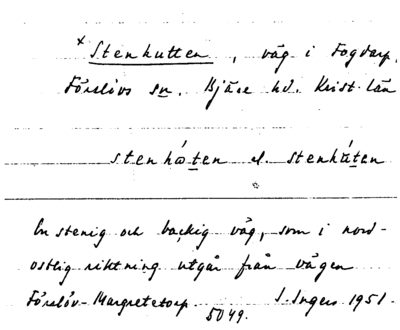 x Stenhutten, väg i Fogdarp,
Förslövs sn. Bjäre hd. Krist. län
stenhώten el. stenhút̲en
En stenig och backig väg, som i nord-
ostlig riktning utgår från vägen
Förslöv-Margretetorp. I. Ingers 1951.
5049.